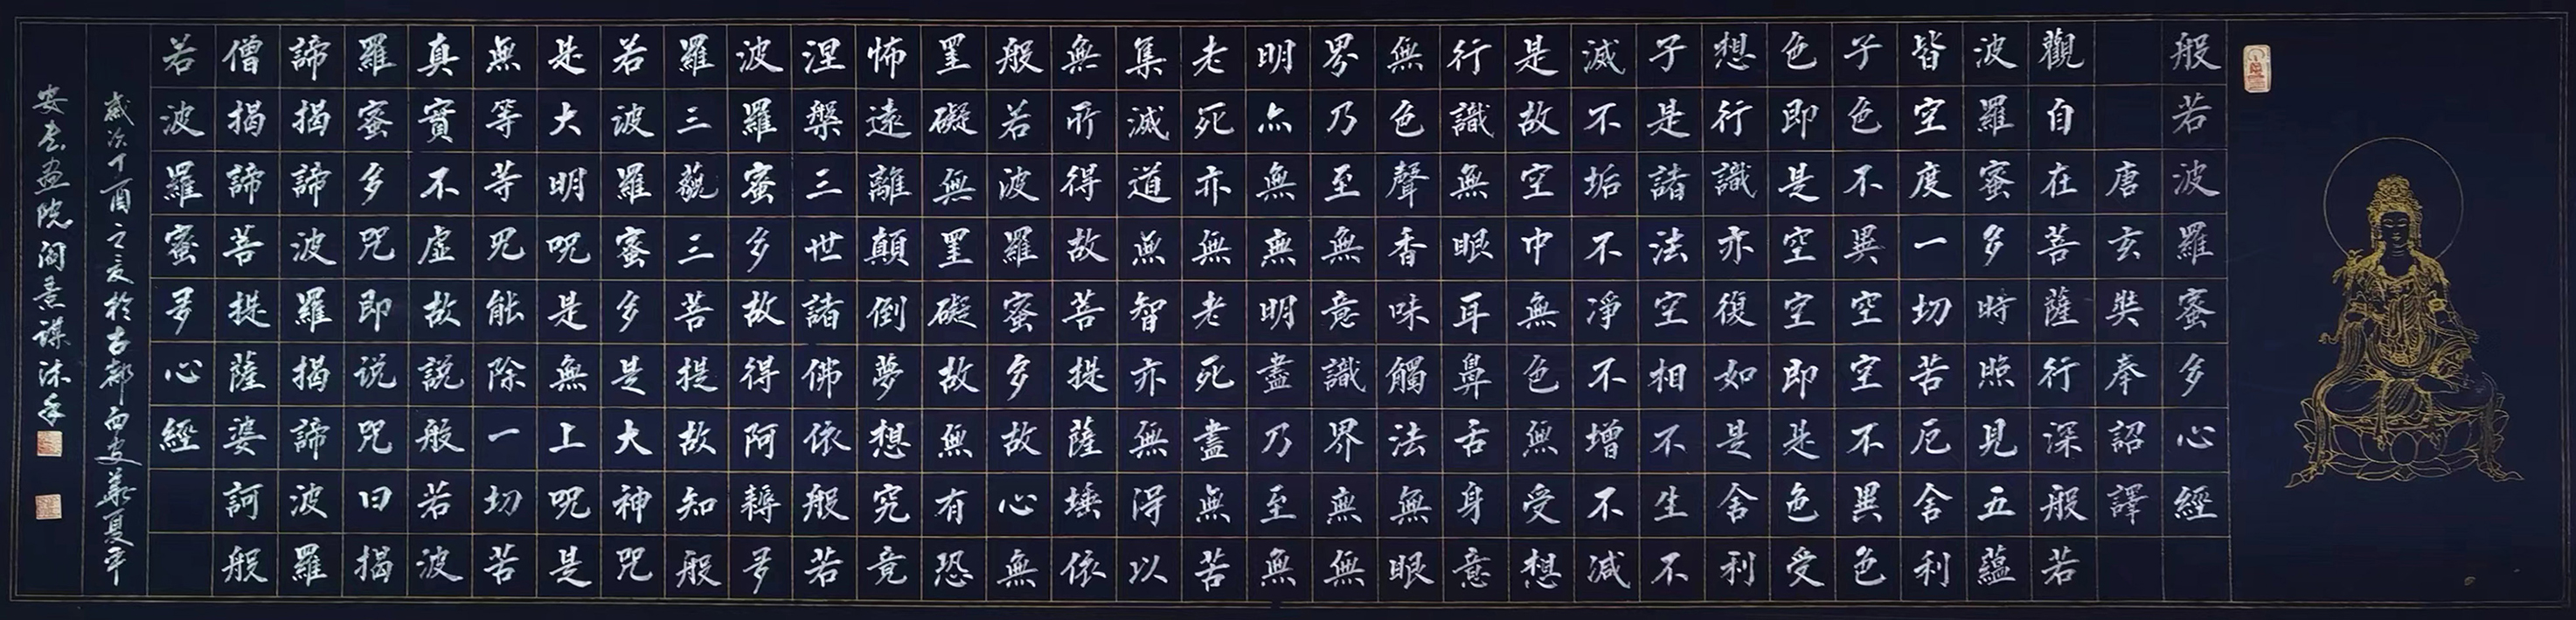 般若波羅蜜多心經
唐玄奘奉詔譯
觀自在菩薩行深般若
波羅蜜多時照見五蘊
皆空度一切苦厄舍利
子色不異空空不異色
色即是空空即是色受
想行識亦復如是舍利
子是諸法空相不生不
滅不垢不淨不增不減
是故空中無色無受想
行識無眼耳鼻舌身意
無色聲香味觸法無眼
界乃至無意識界無無
明亦無無明盡乃至無
老死亦無老死盡無苦
集滅道無智亦無得以
無所得故菩提薩埵依
般若波羅蜜多故心無
罣礙無罣礙故無有恐
怖遠離顛倒夢想究竟
涅槃三世諸佛依般若
波羅蜜多故得阿耨多
羅三藐三菩提故知般
若波羅蜜多是大神咒
是大明呪是無上呪是
無等等咒能除一切苦
真實不虛故說般若波
羅蜜多咒即说咒曰揭
諦揭諦波羅揭諦波羅
僧揭諦菩提薩婆訶般
若波羅蜜多心經
歲次丁酉之夏於古都西安華夏平
安书畫院閻景謀沐手